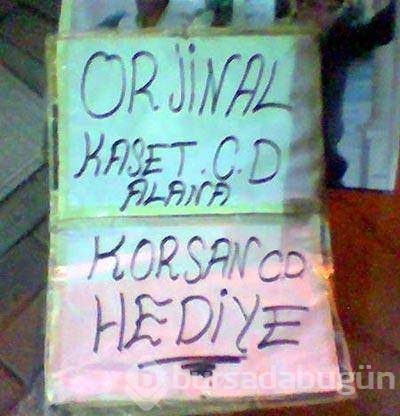 ORJİNAL
KASET.C.D
ALANA
KORSAN CD
HEDİYE
bursadabugün